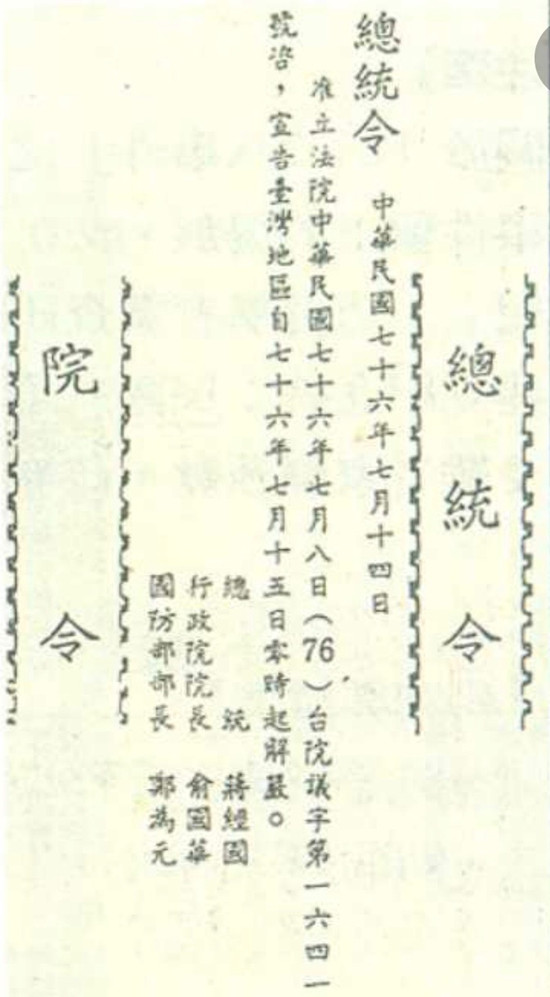 總統令
總統令　中華民國七十六年七月十四日
准立法院中華民國七十六年七月八日（76）台院議字第一六四一
號咨，宣告臺灣地區自七十六年七月十五日零時起解嚴。
總統　蔣經國
行政院院長　俞國華
國防部部長　鄭為元
院令